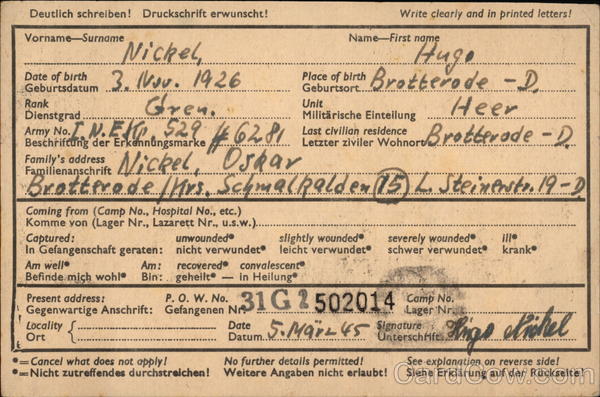 Deutlich schreiben! Druckschrift erwünscht! Write clearly and in printed letters!
Vorname—Surname Nickel, Name—First name Hugo
Date of birth Place of birth
Geburtsdatum 3. Nov. 1926 Geburtsort Brotterode - D.
Rank Unit
Dienstgrad Gren. Militärische Einteilung Heer
Army No. Last civilian residence
Beschriftung der Erkennungsmarke 529 # 6281 Letzter ziviler Wohnort Brotterode - D.
Family's address
Familienanschrift Nickel, Oskar
Brotterode/Krs. Schmalkalden (15) L. Steinerstr. 19-D
Coming from (Camp No., Hospital No., etc.)
Komme von (Lager Nr., Lazarett Nr., u.s.w.)
Captured: unwounded* slightly wounded* severely wounded* ill*
In Gefangenschaft geraten: nicht verwundet* leicht verwundet* schwer verwundet* krank*
Am well* Am: recovered* convalescent*
Befinde mich wohl* Bin: geheilt* — in Heilung*
Present address: P.O.W. No. Camp No.
Gegenwärtige Anschrift: Gefangenen Nr. 31G 502014 Lager Nr.
Locality Date Signature
Ort Datum 5. März 45 Unterschrift Hugo Nickel
*=Cancel what does not apply! No further details permitted! See explanation on reverse side!
*=Nicht zutreffendes durchstreichen! Weitere Angaben nicht erlaubt! Siehe Erklärung auf der Rückseite!
CardCow.com